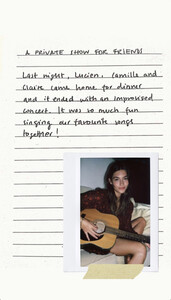 A PRIVATE SHOW FOR FRIENDS
Last night, Lucien, Camille and
Claire came home for dinner
and it ended with an improvised
concert. It was so much fun
singing our favourite songs
together!